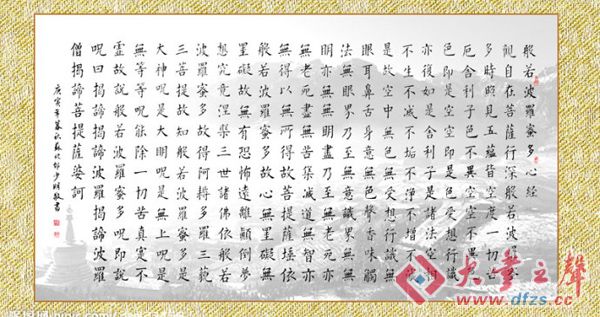 般若波羅蜜多心經
觀自在菩薩行深般若波羅蜜
多時照見五蘊皆空度一切苦
厄舍利子色不異空空不異色
色即是空空即是色受想行識
亦復如是舍利子是諸法空相
不生不滅不垢不淨不增不減
是故空中無色無受想行識無
眼耳鼻舌身意無色聲香味觸
法無眼界乃至無意識界無無
明亦無無明盡乃至無老死亦
無老死盡無苦集滅道無智亦
無得以無所得故菩提薩埵依
般若波羅蜜多故心無罣礙無
罣礙故無有恐怖遠離顛倒夢
想究竟涅槃三世諸佛依般若
波羅蜜多故得阿耨多羅三藐
三菩提故知般若波羅蜜多是
大神呪是大明呪是無上呪是
無等等呪能除一切苦真實不
虛故說般若波羅蜜多呪即說
呪曰揭諦揭諦波羅揭諦波羅
僧揭諦菩提薩婆訶
庚寅年暮秋敬書
大學之聲
www.dfzs.cc